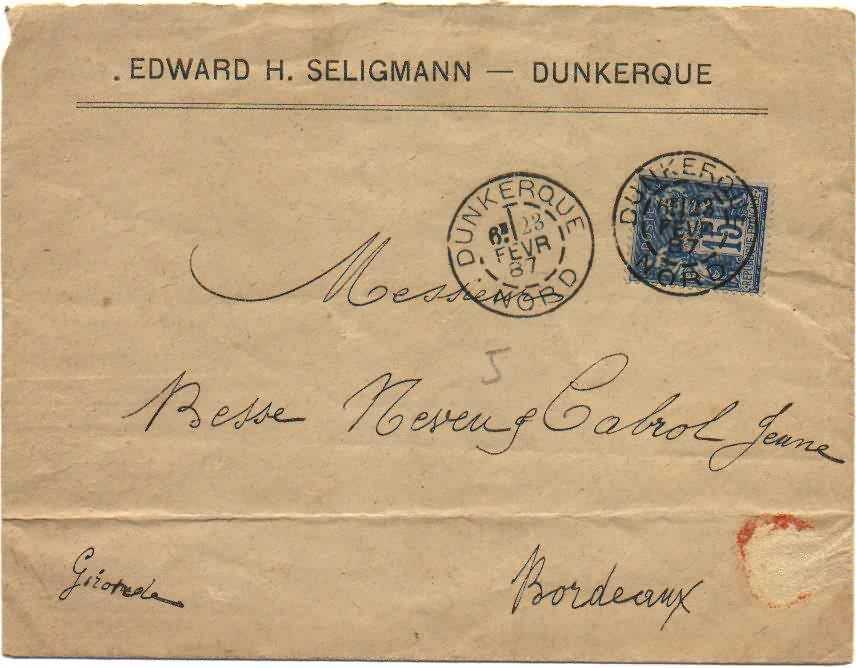 . EDWARD H. SELIGMANN — DUNKERQUE
DUNKERQUE
6E 23
FEVR
87
NORD
DUNKERQUE
23
FEVR
87
NORD
POSTES
15
Messieurs
5
Besse Neveu & Cabrol Jeune
Gironde
Bordeaux